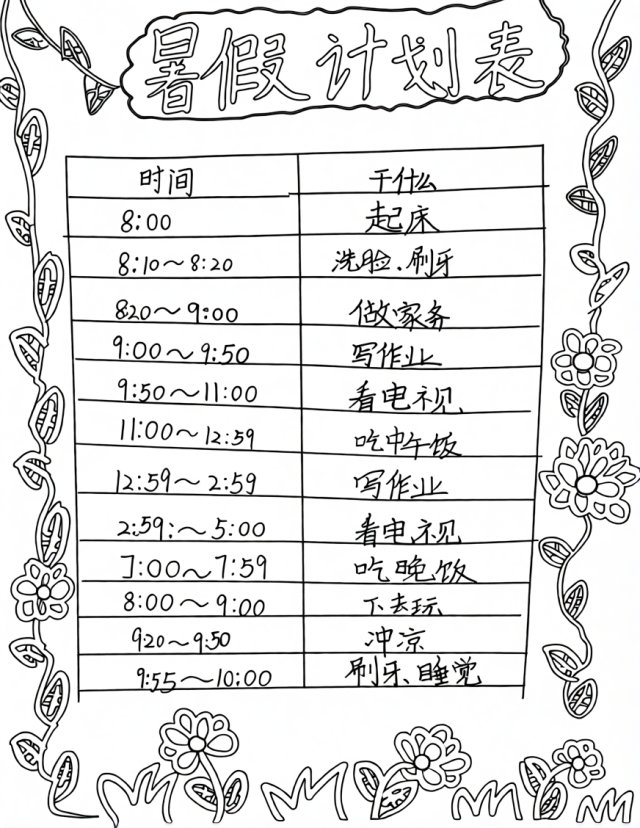 暑假计划表
时间 干什么
8:00 起床
8:10～8:20 洗脸、刷牙
820～9:00 做家务
9:00～9:50 写作业
9:50～11:00 看电视
11:00～12:59 吃中午饭
12:59～2:59 写作业
2:59:～5:00 看电视
7:00～7:59 吃晚饭
8:00～9:00 下去玩
920～9:50 冲凉
9:55～10:00 刷牙、睡觉